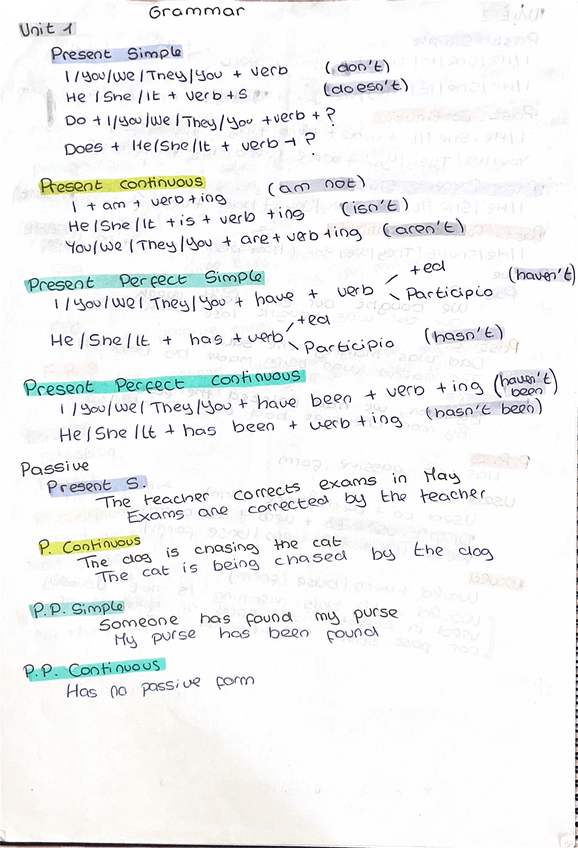 Grammar
Unit 1
Present Simple
I/You/We/They/You + verb (don't)
He/She/It + verb+s (doesn't)
Do + I/you/we/They/You +verb + ?
Does + He/She/It + verb + ?
Present continuous (am not)
I + am + verb +ing
He/She/It +is + verb +ing (isn't)
You/We/They/You + are + verb +ing (aren't)
Present Perfect Simple
I/You/We/They/You + have + verb +ed Participio (haven't)
He/She/It + has + verb +ed Participio (hasn't)
Present Perfect continuous
I/You/We/They/You + have been + verb +ing (haven't been)
He/She/It + has been + verb +ing (hasn't been)
Passive
Present S.
The teacher corrects exams in May
Exams are corrected by the teacher
P. Continuous
The dog is chasing the cat
The cat is being chased by the dog
P.P. Simple
Someone has found my purse
My purse has been found
P.P. Continuous
Has no passive form